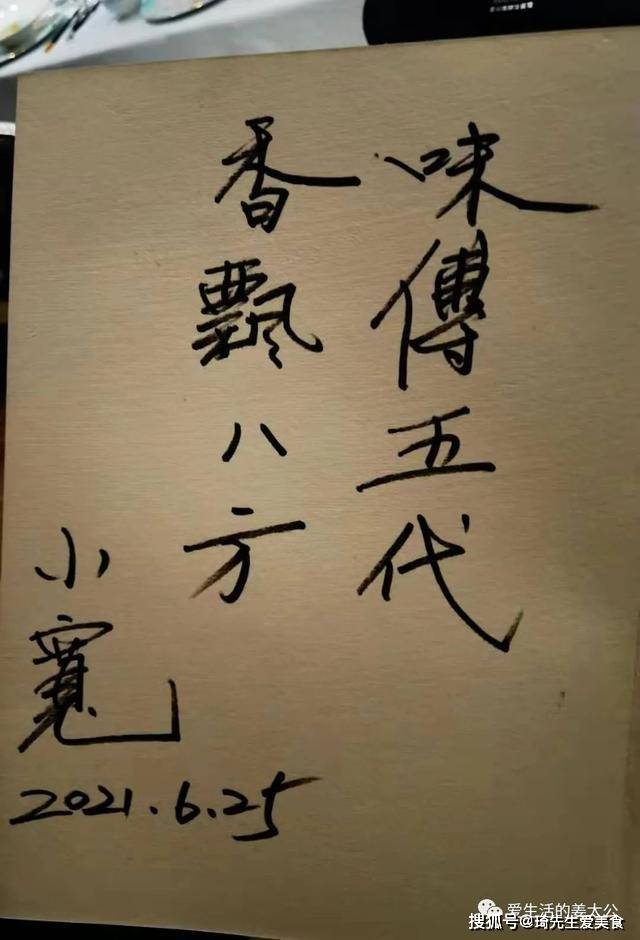 味傳五代
香飄八方
小寬
2021.6.25
爱生活的姜太公
搜狐号@琦先生爱美食